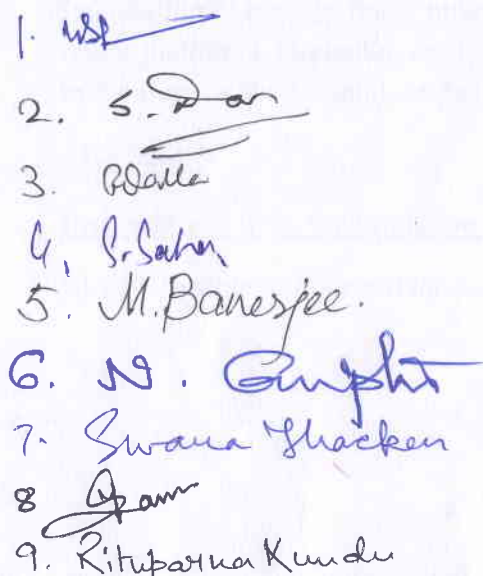 1.
2. S. Dan
3.
4. S. Saha
5. M. Banerjee.
6. N. Gupta
7. Swana Thacker
8
9. Rituparna Kundu